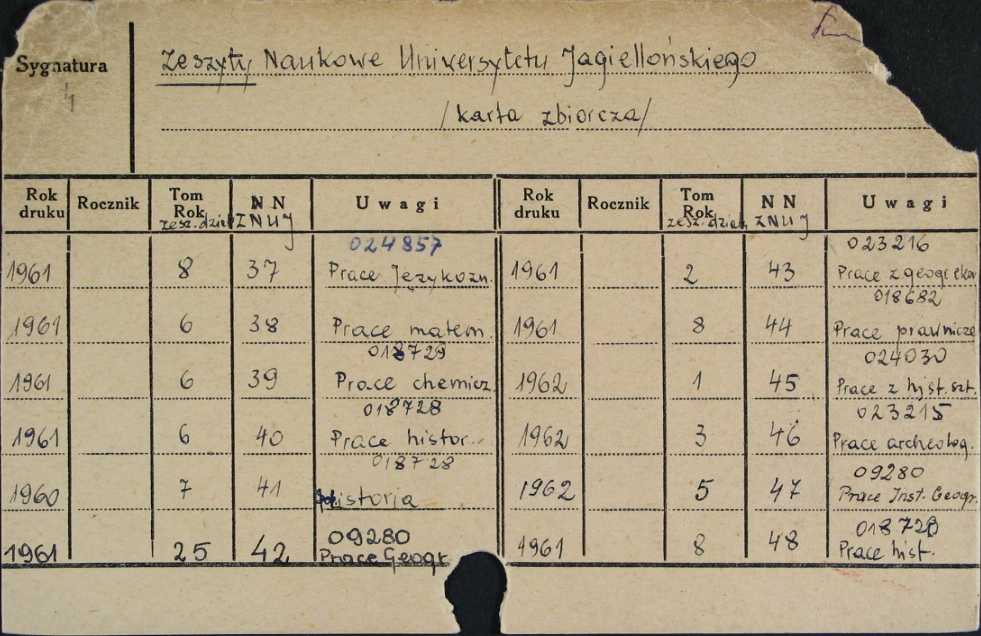 Sygnatura
Zeszyty Naukowe Uniwersytetu Jagiellońskiego
/karta zbiorcza/
Rok druku Rocznik Tom Rok zesz. dział NN ZNUJ Uwagi Rok druku Rocznik Tom Rok zesz. dział NN ZNUJ Uwagi
024857 023216
1961 8 37 Prace Językozn. 1961 2 43 Prace z geogr. ekon
018682
1961 6 38 Prace matem. 1961 8 44 Prace prawnicze
018729 024030
1961 6 39 Prace chemicz. 1962 1 45 Prace z hist. szt.
018728 023215
1961 6 40 Prace histor. 1962 3 46 Prace archeolog.
018728 09280
1960 7 41 historia 1962 5 47 Prace Inst. Geogr.
09280 018728
1961 25 42 Prace Geogr. 1961 8 48 Prace hist.